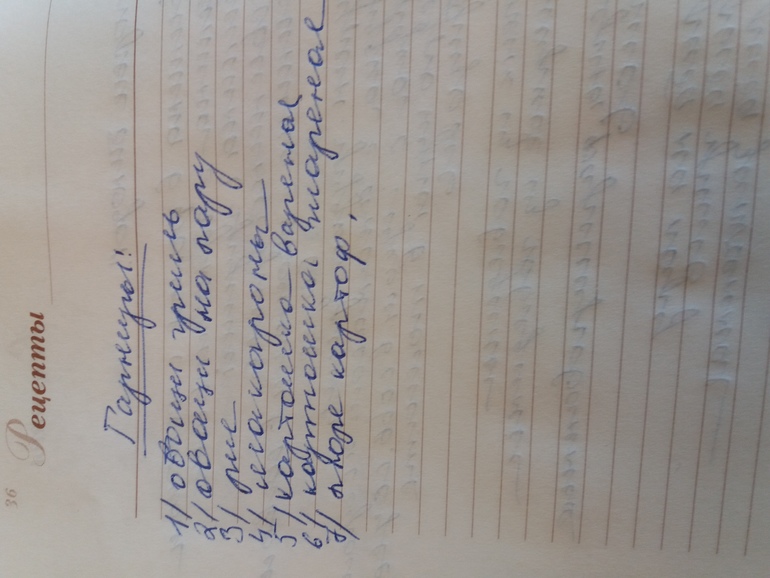 36
Рецепты
Гарниры!
1/ овощи гриль
2/ овощи на пару
3/ рис
4/ макароны
5/ картошка вареная
6/ картошка жареная
7/ пюре картоф.